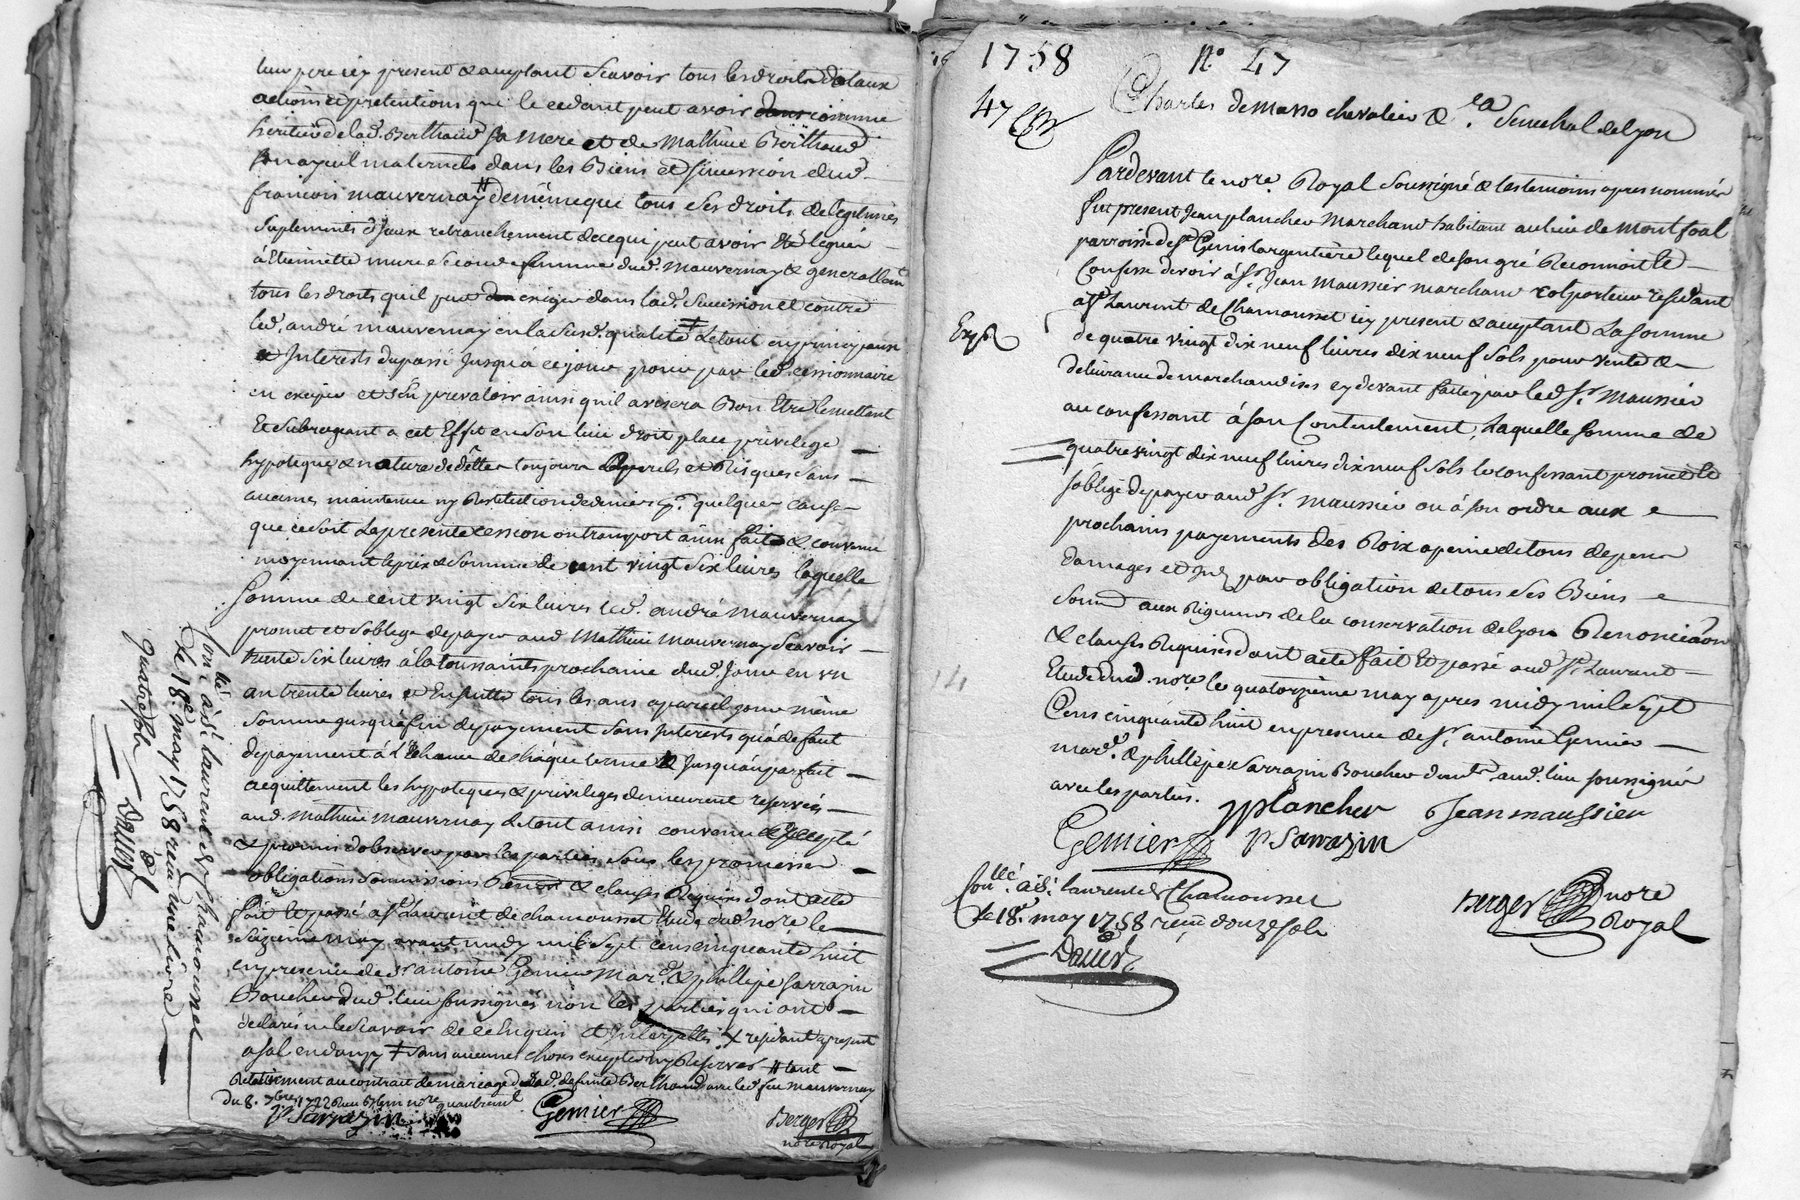 leur pere icy present & acceptant Scavoir tous les droits dotaux
actions et pretentions que le cedant peut avoir comme
héritier de lad. Berthaud sa mere et de Mathieu Berthaud
son ayeul maternels dans les Biens et succession dud.
francois mauvernay # demême que tous ses droits de legitimes
suplements d'jceux retranchement de ce qui peut avoir été legué
à Etiennette mure seconde femme dud. mauvernay & generallem.t
tous les droits quil peut exiger dans lad. succession et contre
led. andré mauvernay en la susd. qualité ≠ le tout en principaux
& Interests du passé jusqua ce jour pour par led. cessionnaire
en exiger et s'en prevaloir ainsi quil avisera Bon Etre le mettant
Et Subrogeant a cet Effet en son lieu droit place privilege
hypoteque & nature de dette toujours aperils et Risques sans
aucunes maintenue ny Restitution de deniers p.r quelque cause
que ce soit la presente cession ou transport ainsi fait & convenu
moyennant le prix & somme de cent vingt six livres laquelle
Somme de cent vingt six livres led. andré mauvernay
promet et s'oblige de payer aud. Mathieu Mauvernay Scavoir
trente six livres à la toussaints prochaine dud. jour en un
an trente livres & Ensuitte tous les ans a pareil jour même
somme jusqu'à fin de payement sans Interests qu'à defaut
de payement à l'Echeance de chaque terme & jusqu'à parfait
acquittement les hypoteques & privileges demeurent reservés
aud. Mathieu mauvernay le tout ainsi convenu accepté
& promis d'observer par les parties sous les promesses
obligations soumissions Renon.s & clauses Requises dont acte
fait Et passé a S.t Laurent de chamousset Etude dud. no.re le
seizieme may avant midy mil sept cens cinquante huit
en presence de s.r antoine Gemier mar.d & phillipe sarrazin
Boucher dud. lieu soussignés non les parties qui ont
declarés ne le scavoir de ce Enquis et Interpellés X residant a present
≠ sans aucunes choses excepter ny Reserver # tant
Relativement au contrat de mariage de lad. defunte Berthaud avec led. feu mauvernay
du 8.
P Sarrazin Gemier Berger
no.re Royal
Con.lé à S.t laurent de chamousset
le 18.e may 1758 recu une livre
quatre sols
Dauet
1758 N.o 47
47
Charles de masso chevalier &.ca Senechal de lyon
Pardevant le no.re Royal Soussigné & les temoins apres nommés
fut present Jean plancher Marchand habitant au lieu de Montfoal
parroisse de S.t Genis largentière lequel de son gré Reconnoit &
Confesse devoir à S.r Jean Maussier marchand colporteur residant
a S.t Laurent de Chamousset icy present & acceptant La somme
de quatre vingt dix neuf livres dix neuf sols pour vente &
delivrance de marchandises cy devant faite par led. S.r Maussier
au confessant à son Contentement, Laquelle somme de
quatre vingt dix neuf livres dix neuf sols le confessant promet &
s'oblige de payer aud. S.r Maussier ou à son ordre aux
prochains payements des Roix a peine de tous depens
Damages et Int. par obligation de tous ses Biens
Soum.s aux Rigueurs de la conservation de lyon Renonciaon
& clauses Requises dont acte fait Et passé aud. S.t Laurent
Etude dud. no.re le quatorzième may apres midy mil sept
Cens cinquante huit en presence de S.r antoine Gemier
mar.d & phillipe Sarrazin Boucher dem.t aud. lieu soussignés
avec les parties.
plancher Jean maussier
Gemier P Sarrazin
Con.lé à S.t laurent de Chamousset
le 18.e may 1758 recu douze sols
Dauet
Berger no.re
Royal